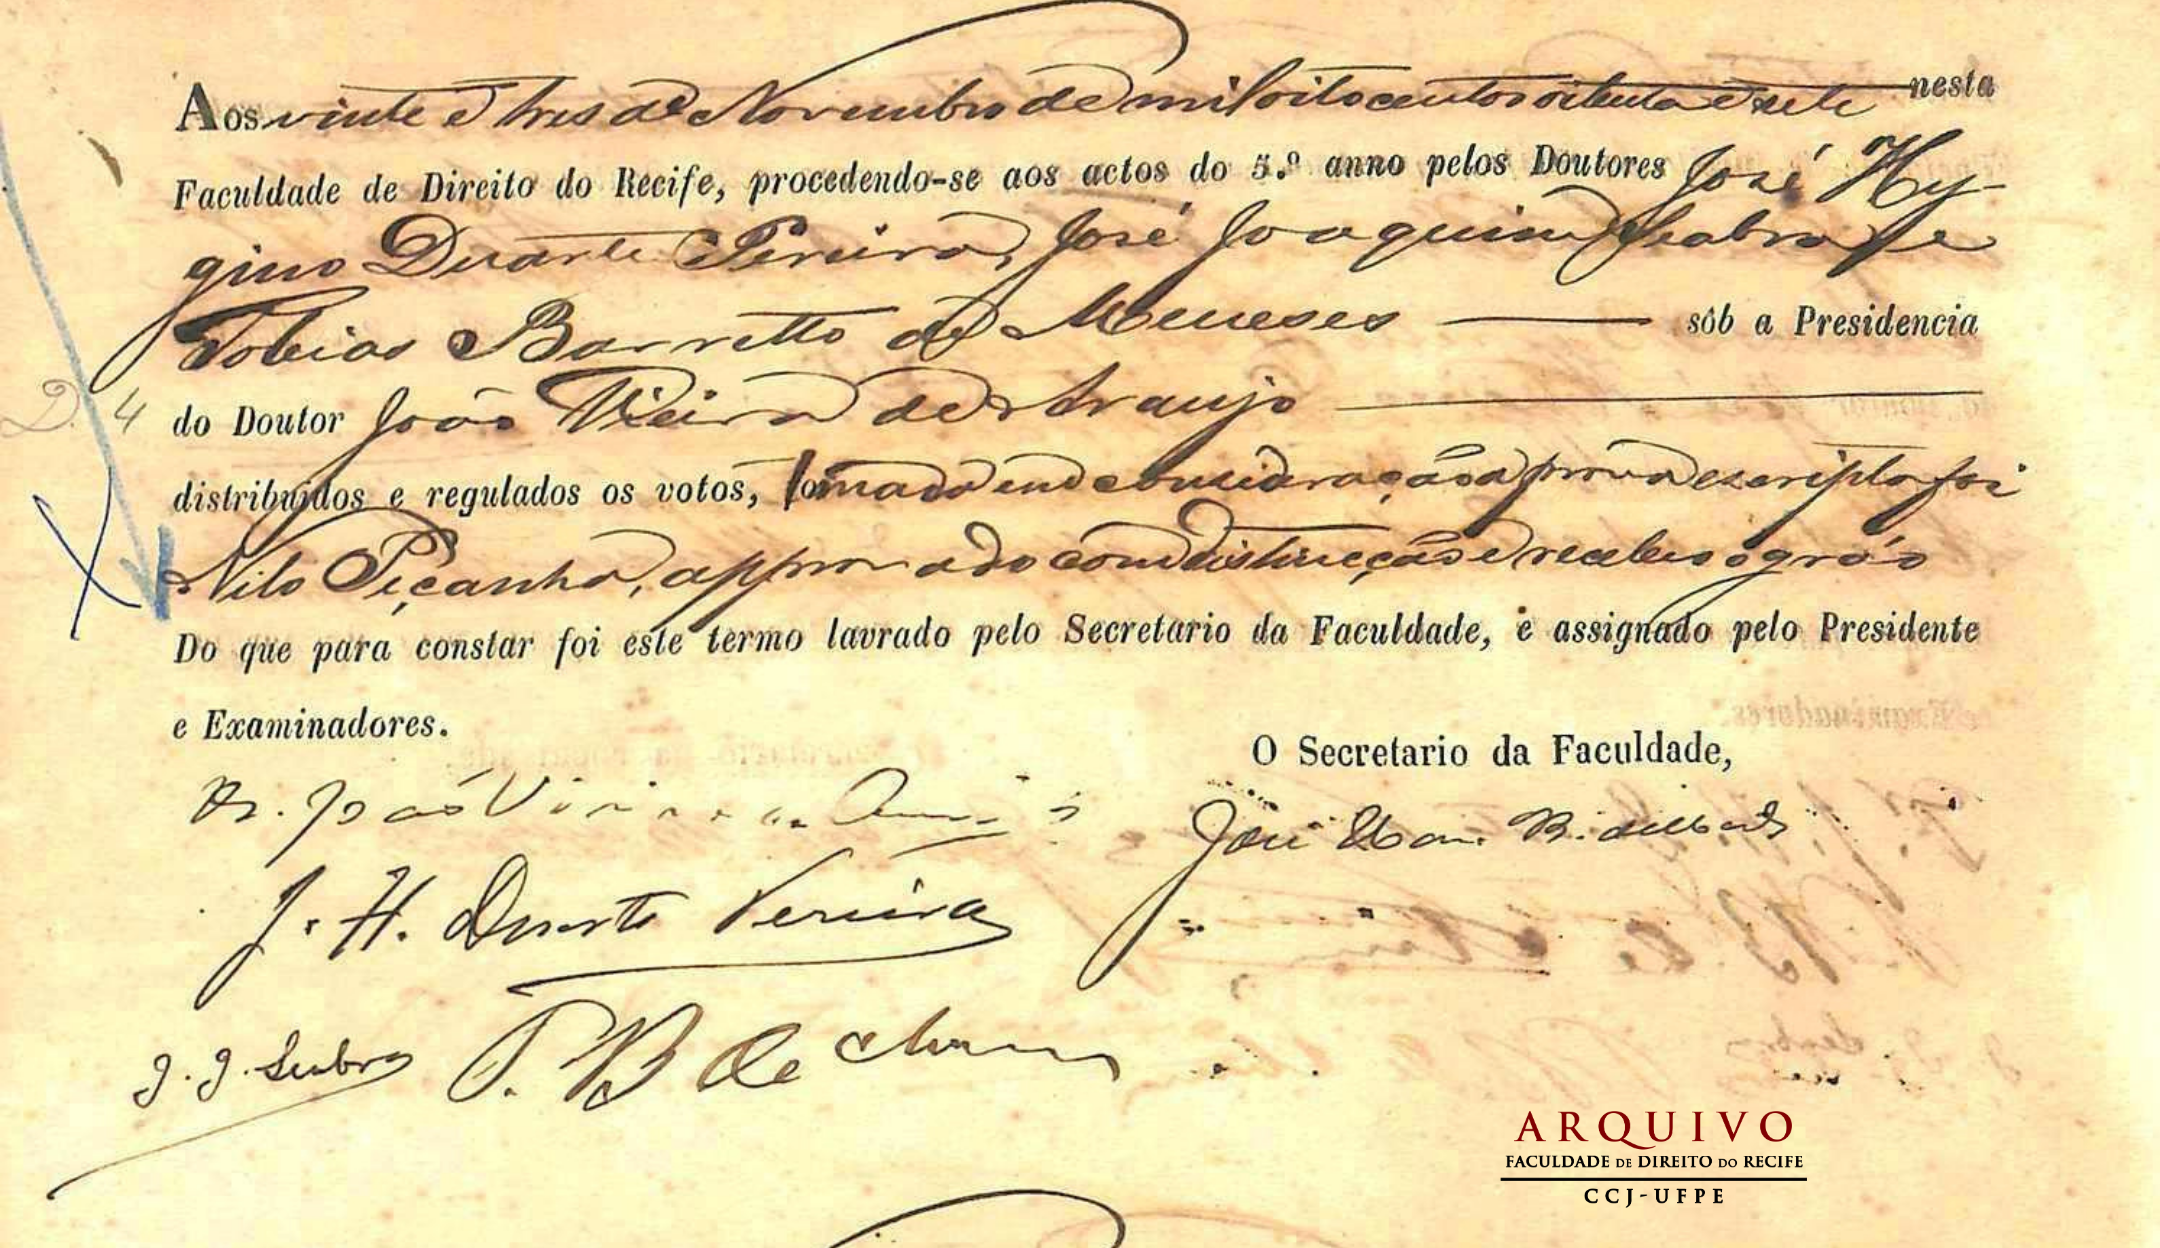 Aos vinte e tres de Novembro de mil oitocentos oitenta e sete nesta
Faculdade de Direito do Recife, procedendo-se aos actos do 5.º anno pelos Doutores José Hy-
gino Duarte Pereira, José Joaquim Seabra e
Tobias Barretto de Meneses sób a Presidencia
D. 4
do Doutor João Vieira de Araujo
distribuidos e regulados os votos, tomado em consideração a prova escripta foi
Nilo Peçanha, approvado com distincção e recebeu o gráo
Do que para constar foi este termo lavrado pelo Secretario da Faculdade, e assignado pelo Presidente
e Examinadores.
O Secretario da Faculdade,
Dr. João Vieira de Araujo
José
J. H. Duarte Pereira
J. J. Seabra T. B de Meneses
ARQUIVO
FACULDADE DE DIREITO DO RECIFE
CCJ-UFPE